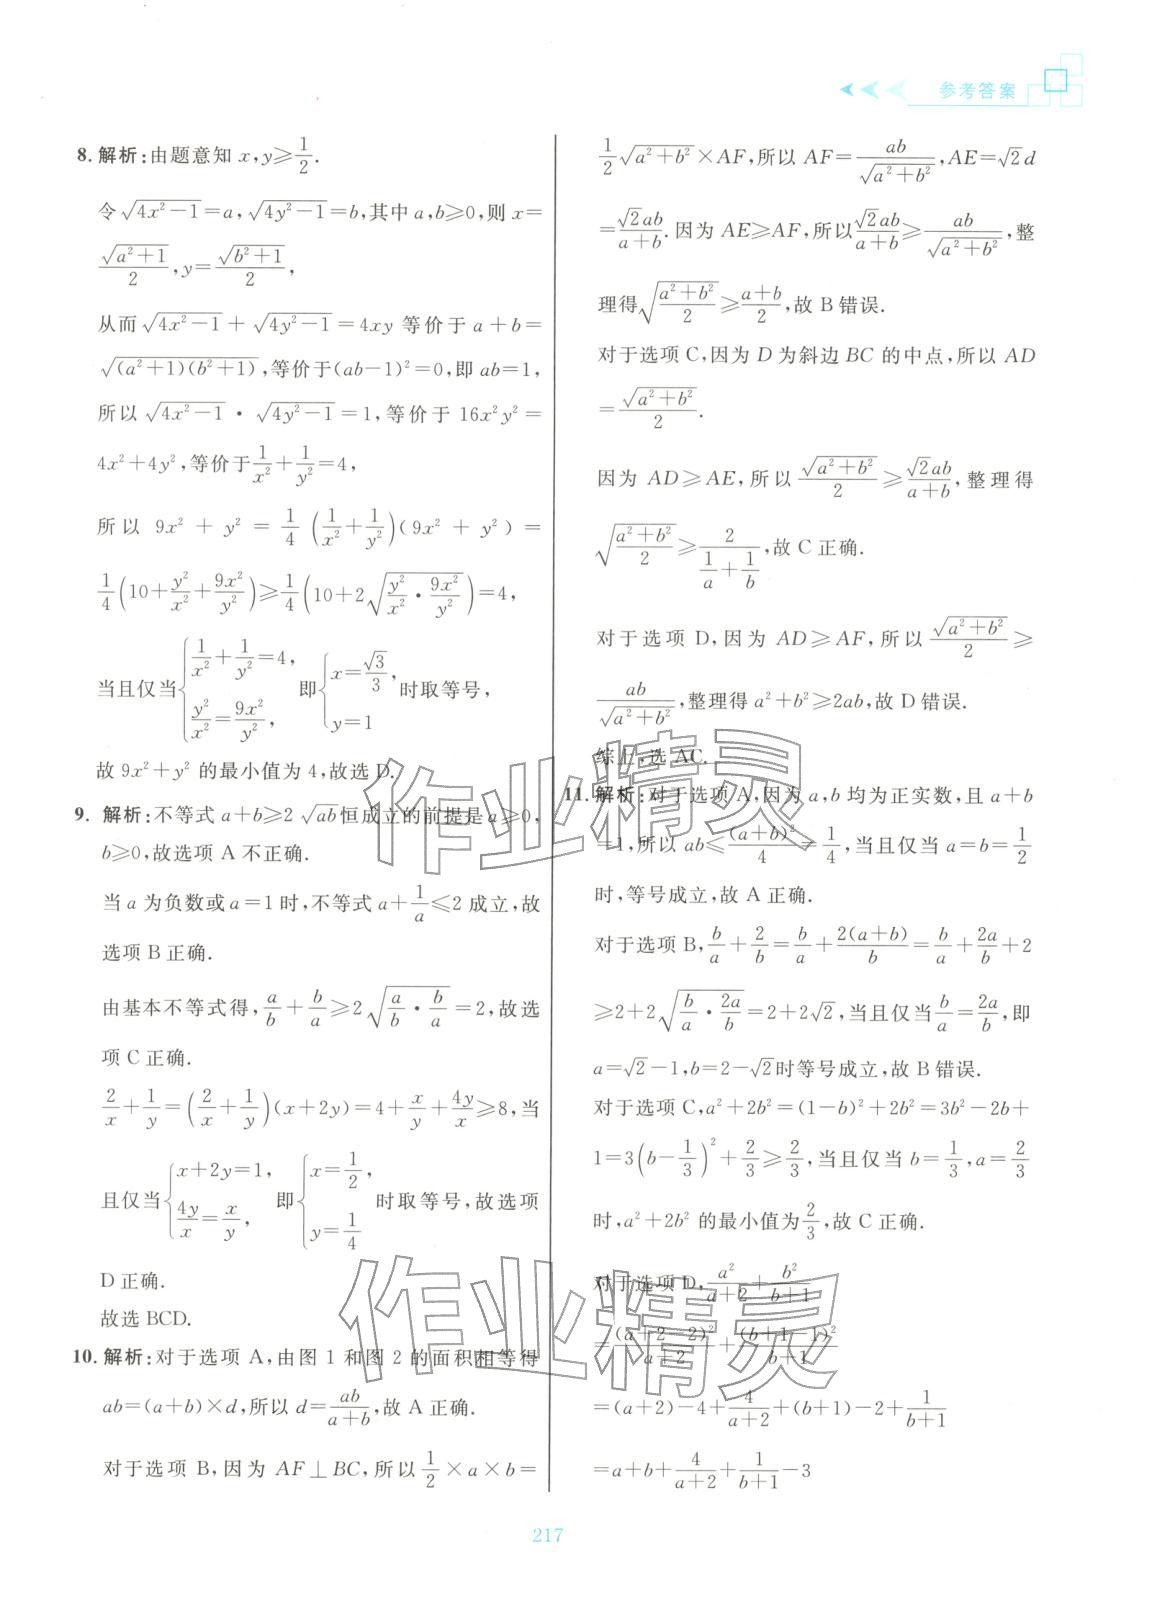 参考答案
8. 解析:由题意知 x,y≥1/2.
令√(4x²−1)=a,√(4y²−1)=b,其中 a,b≥0,则 x=
√(a²+1)/2,y=√(b²+1)/2,
从而√(4x²−1)+√(4y²−1)=4xy 等价于 a+b=
√((a²+1)(b²+1)),等价于(ab−1)²=0,即 ab=1,
所以√(4x²−1)·√(4y²−1)=1,等价于 16x²y²=
4x²+4y²,等价于1/x²+1/y²=4,
所以 9x²+y²=1/4(1/x²+1/y²)(9x²+y²)=
1/4(10+y²/x²+9x²/y²)≥1/4(10+2√(y²/x²·9x²/y²))=4,
当且仅当{1/x²+1/y²=4, y²/x²=9x²/y², 即{x=√3/3, y=1 时取等号,
故 9x²+y² 的最小值为 4,故选 D.
9. 解析:不等式 a+b≥2√ab恒成立的前提是 a≥0,
b≥0,故选项 A 不正确.
当 a 为负数或 a=1 时,不等式 a+1/a≤2 成立,故
选项 B 正确.
由基本不等式得,a/b+b/a≥2√(a/b·b/a)=2,故选
项 C 正确.
2/x+1/y=(2/x+1/y)(x+2y)=4+x/y+4y/x≥8,当
且仅当{x+2y=1, 4y/x=x/y, 即{x=1/2, y=1/4 时取等号,故选项
D 正确.
故选 BCD.
10. 解析:对于选项 A,由图 1 和图 2 的面积相等得
ab=(a+b)×d,所以 d=ab/(a+b),故 A 正确.
对于选项 B,因为 AF⊥BC,所以1/2×a×b=
1/2√(a²+b²)×AF,所以 AF=ab/√(a²+b²),AE=√2d
=√2ab/(a+b).因为 AE≥AF,所以√2ab/(a+b)≥ab/√(a²+b²),整
理得√((a²+b²)/2)≥(a+b)/2,故 B 错误.
对于选项 C,因为 D 为斜边 BC 的中点,所以 AD
=√(a²+b²)/2.
因为 AD≥AE,所以√(a²+b²)/2≥√2ab/(a+b),整理得
√((a²+b²)/2)≥2/(1/a+1/b),故 C 正确.
对于选项 D,因为 AD≥AF,所以√(a²+b²)/2≥
ab/√(a²+b²),整理得 a²+b²≥2ab,故 D 错误.
综上,选 AC.
11. 解析:对于选项 A,因为 a,b 均为正实数,且 a+b
=1,所以 ab≤(a+b)²/4=1/4,当且仅当 a=b=1/2
时,等号成立,故 A 正确.
对于选项 B,b/a+2/b=b/a+2(a+b)/b=b/a+2a/b+2
≥2+2√(b/a·2a/b)=2+2√2,当且仅当b/a=2a/b,即
a=√2−1,b=2−√2时等号成立,故 B 错误.
对于选项 C,a²+2b²=(1−b)²+2b²=3b²−2b+
1=3(b−1/3)²+2/3≥2/3,当且仅当 b=1/3,a=2/3
时,a²+2b² 的最小值为2/3,故 C 正确.
对于选项 D,a²/(a+2)+b²/(b+1)
=(a+2−2)²/(a+2)+(b+1−1)²/(b+1)
=(a+2)−4+4/(a+2)+(b+1)−2+1/(b+1)
=a+b+4/(a+2)+1/(b+1)−3
217
作业精灵
作业精灵